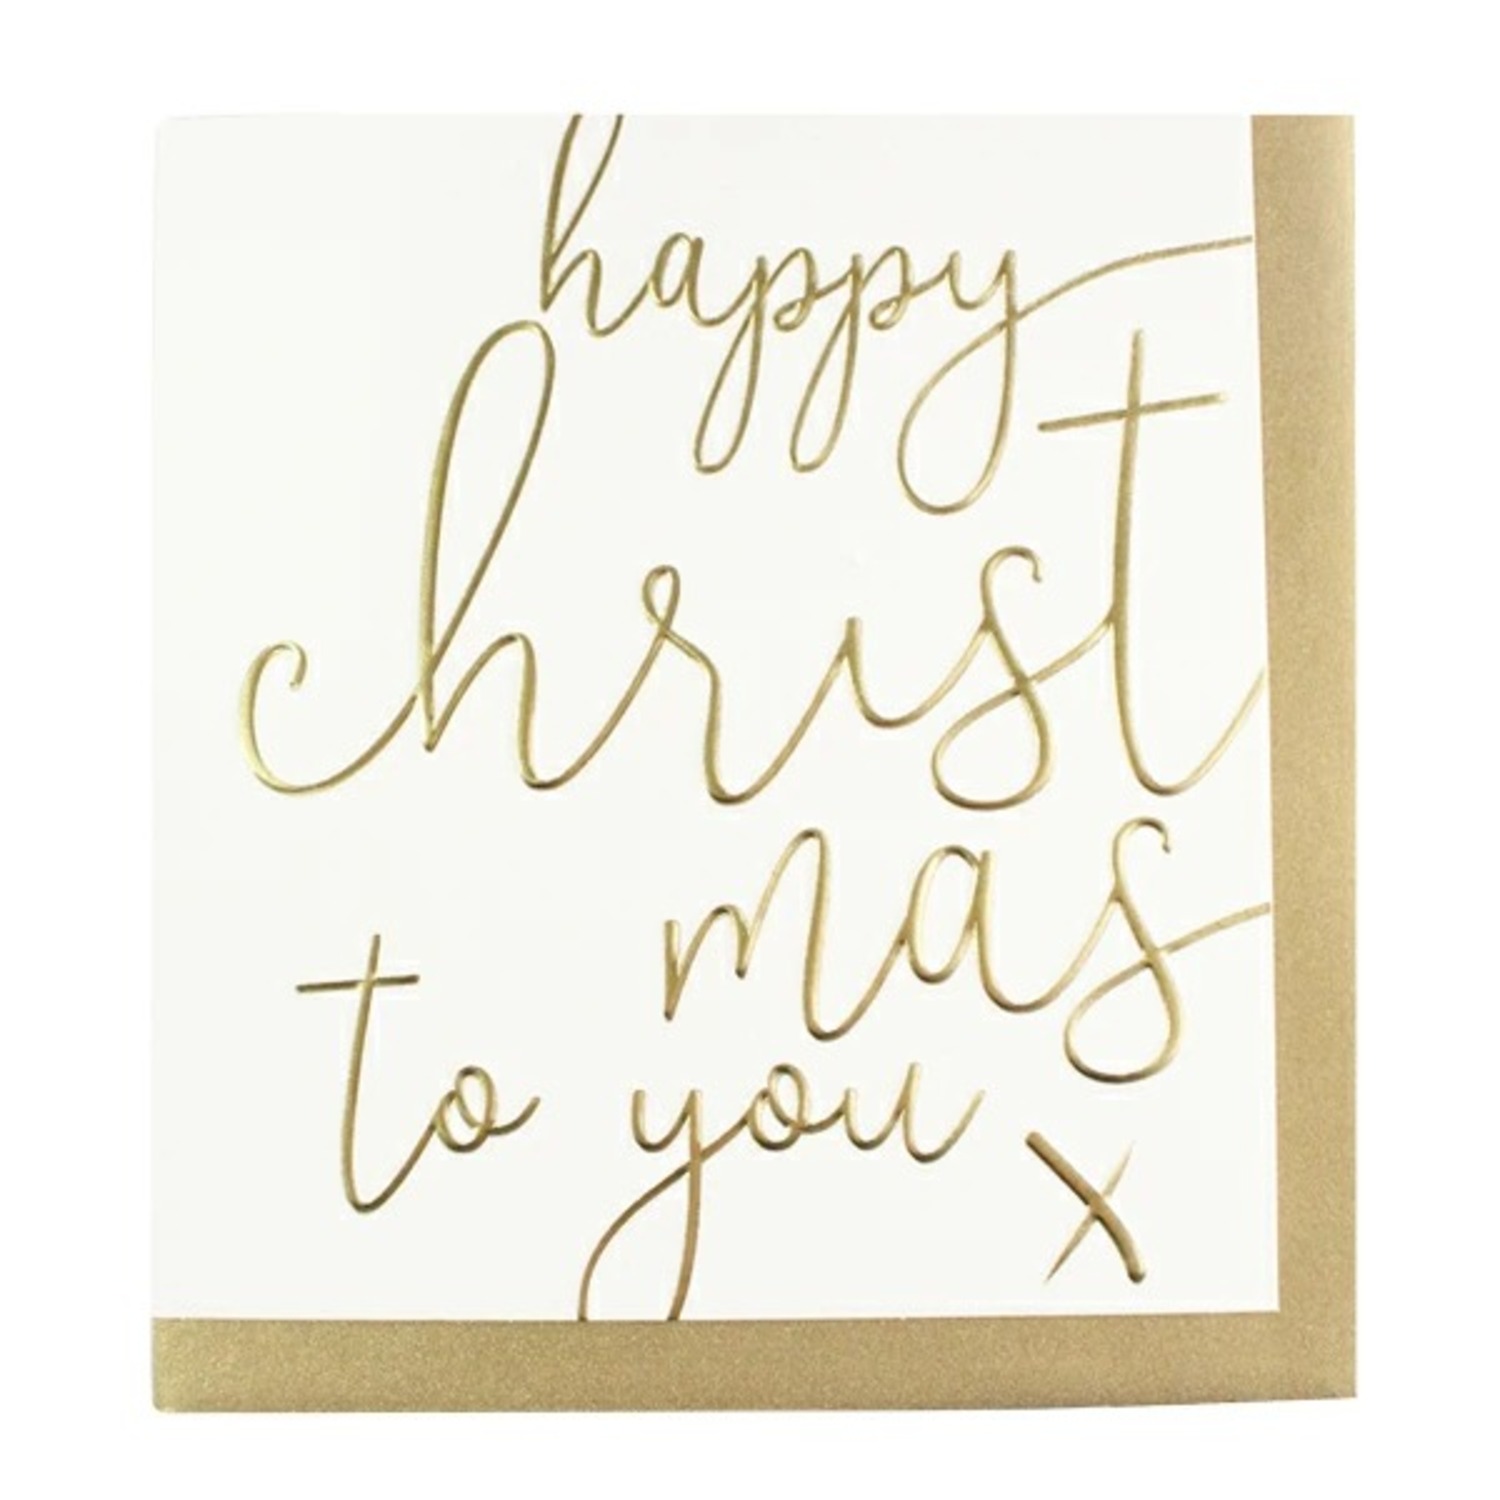 happy
christ
mas
to you
x